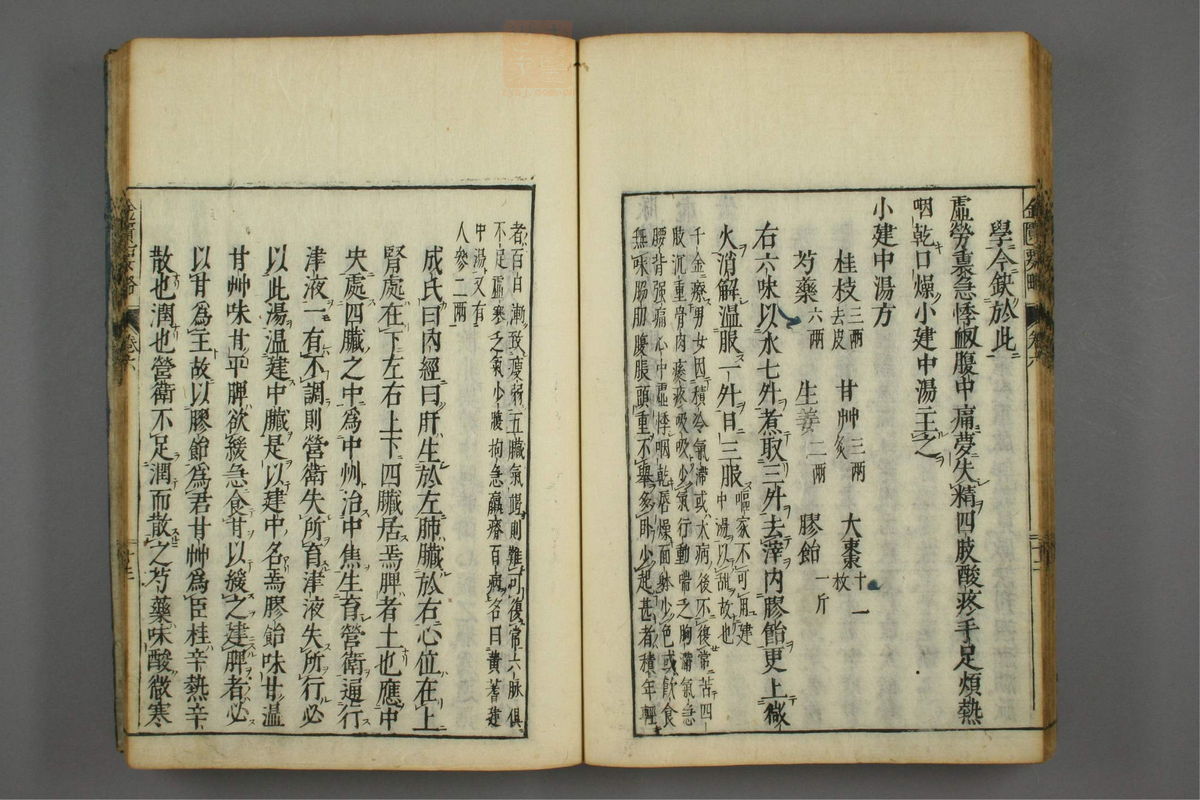 金匱要略 卷六
學今欽於此
虛勞裏急悸衂腹中痛夢失精四肢酸疼手足煩熱
咽乾口燥小建中湯主之
小建中湯方
桂枝三兩去皮 甘艸三兩炙 大棗十一枚
芍藥六兩 生姜二兩 膠飴一斤
右六味以水七升煮取三升去滓內膠飴更上微
火消解溫服一升日三服嘔家不可用建中湯以甜故也
千金療男女因積冷氣滯或大病後不復常苦四
肢沉重骨肉痠疼吸吸少氣行動喘乏胸滿氣急
腰背强痛心中虛悸咽乾唇燥面躰少色或飮食
無味脇肋腹脹頭重不擧多卧少起甚者積年輕
者百日漸致瘦弱五臟氣竭則難可復常六脉俱
不足虛寒乏氣少腹拘急羸瘠百病名曰黃蓍建
中湯又有
人參二兩
成氏曰內經曰肝生於左肺臟於右心位在上
腎處在下左右上下四臟居焉脾者土也應中
央處四臟之中爲中州治中焦生育營衛通行
津液一有不調則營衛失所育津液失所行必
以此湯溫建中臟是以建中名焉膠飴味甘溫
甘艸味甘平脾欲緩急食甘以緩之建脾者必
以甘爲主故以膠飴爲君甘艸爲臣桂辛熱辛
散也潤也營衛不足潤而散之芍藥味酸微寒
卷六